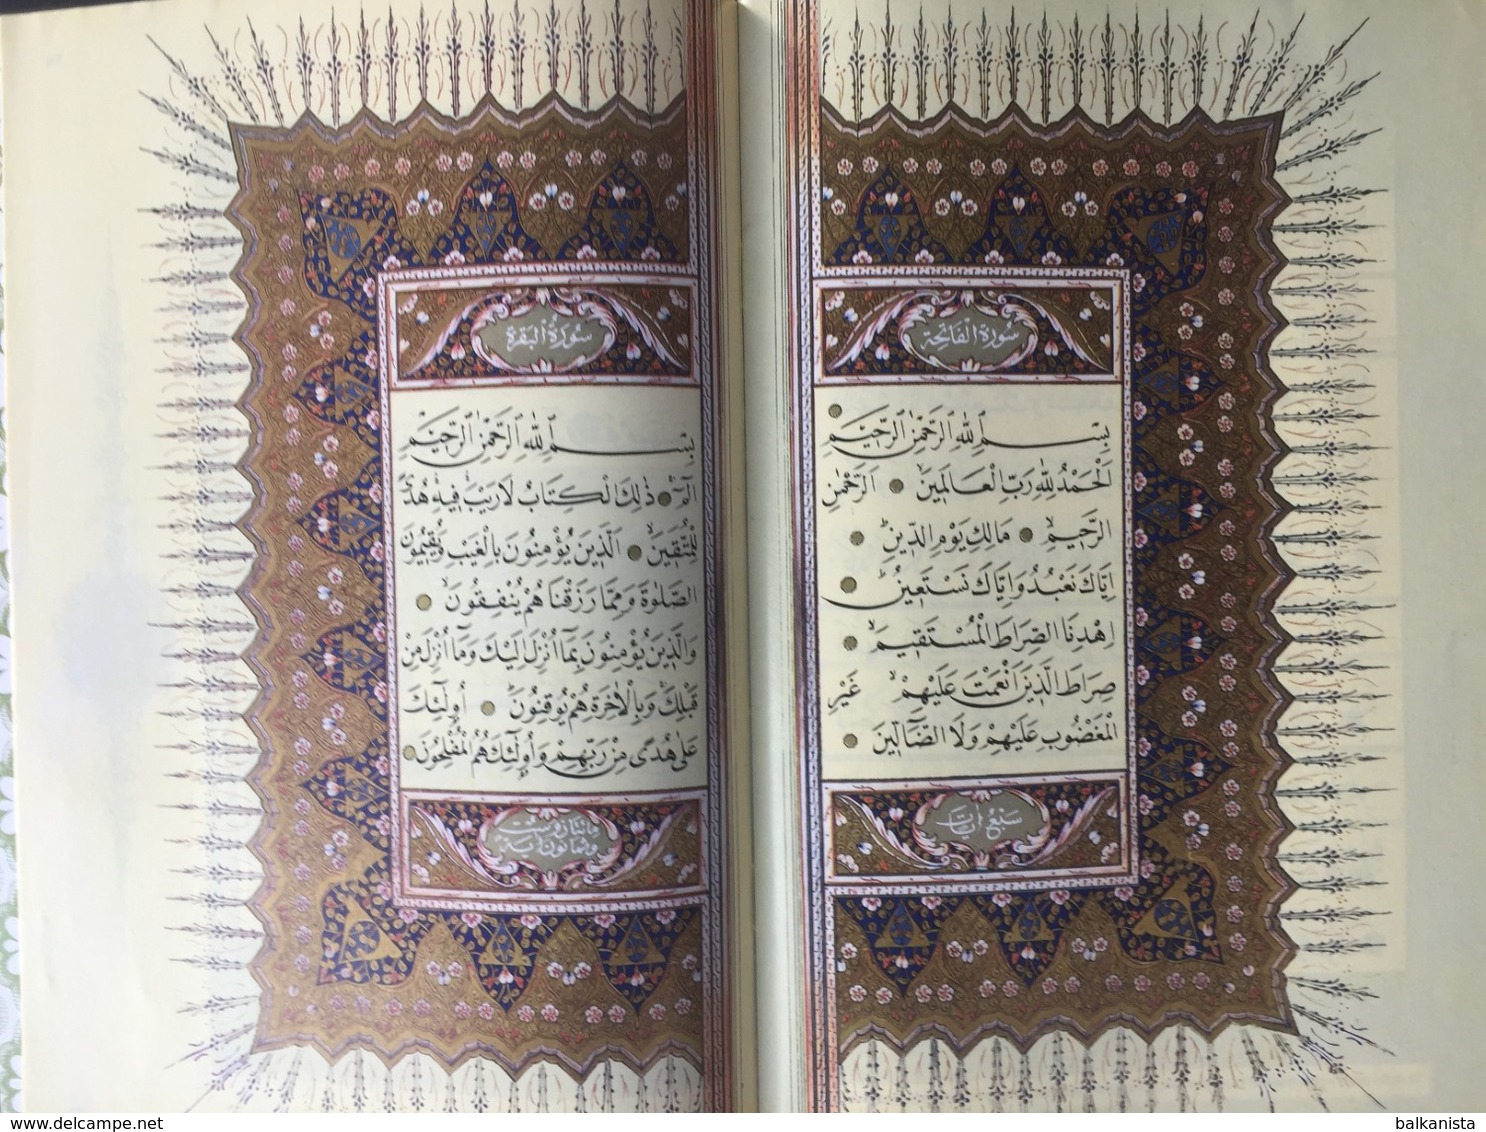 سُورَةُ الْفَاتِحَة
بِسْمِ ٱللّٰهِ ٱلرَّحْمٰنِ ٱلرَّحِيمِ
اَلْحَمْدُ لِلّٰهِ رَبِّ الْعَالَمِينَ اَلرَّحْمٰنِ
الرَّحِيمِ مَالِكِ يَوْمِ الدِّينِ
اِيَّاكَ نَعْبُدُ وَاِيَّاكَ نَسْتَعِينُ
اِهْدِنَا الصِّرَاطَ الْمُسْتَقِيمَ
صِرَاطَ الَّذِينَ اَنْعَمْتَ عَلَيْهِمْ غَيْرِ
الْمَغْضُوبِ عَلَيْهِمْ وَلَا الضَّالِّينَ
سَبْعُ اٰيَات
سُورَةُ الْبَقَرَة
بِسْمِ ٱللّٰهِ ٱلرَّحْمٰنِ ٱلرَّحِيمِ
الٓمٓ ذٰلِكَ الْكِتَابُ لَا رَيْبَ فِيهِ هُدًى
لِلْمُتَّقِينَ اَلَّذِينَ يُؤْمِنُونَ بِالْغَيْبِ وَيُقِيمُونَ
الصَّلٰوةَ وَمِمَّا رَزَقْنَاهُمْ يُنْفِقُونَ
وَالَّذِينَ يُؤْمِنُونَ بِمَٓا اُنْزِلَ اِلَيْكَ وَمَٓا اُنْزِلَ مِنْ
قَبْلِكَ وَبِالْاٰخِرَةِ هُمْ يُوقِنُونَ اُولٰٓئِكَ
عَلٰى هُدًى مِنْ رَبِّهِمْ وَاُولٰٓئِكَ هُمُ الْمُفْلِحُونَ
مائتان وست
وثمانون آية
www.delcampe.net
balkanista